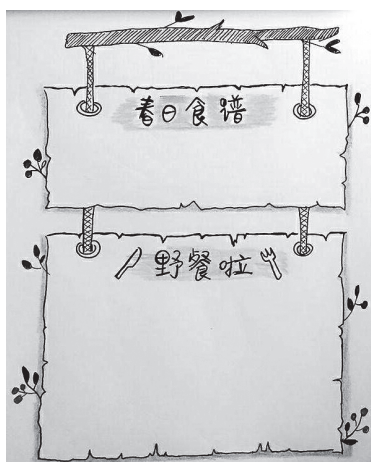 春日食谱
野餐啦